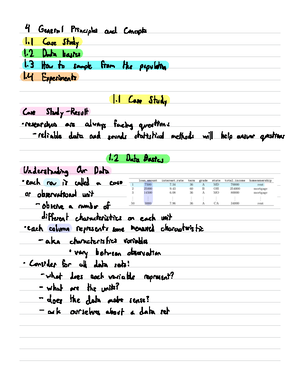 4 General Principles and Concepts
1.1 Case Study
1.2 Data basics
1.3 How to sample from the population
1.4 Experiments
1.1 Case Study
Case Study - Result
• researchers are always facing questions
- reliable data and sounds statistical methods will help answer questions
1.2 Data Basics
Understanding Our Data
• each row is called a case
or observational unit
- observe a number of
different characteristics on each unit
• each column represents some measured characteristic
- aka characteristics variables
• vary between observation
• Consider for all data sets:
- what does each variable represent?
- what are the units?
- does the data make sense?
- ask ourselves about a data set